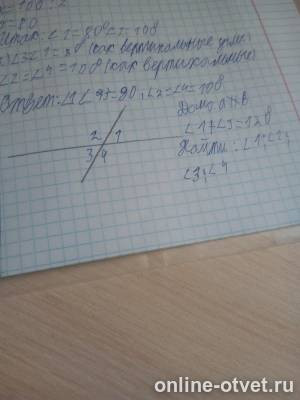 = 80
Итак: ∠1 = 80° ∠2 = 108
∠3 = ∠1 = 80 (как вертикальные углы)
∠2 = ∠4 = 108 (как вертикальные)
Ответ: ∠1 ∠3 = 80, ∠2 = ∠4 = 108
Дано: a
∠1+∠3 = 128
Найти: ∠1, ∠2,
∠3, ∠4
2 1
3 4
online-otvet.ru